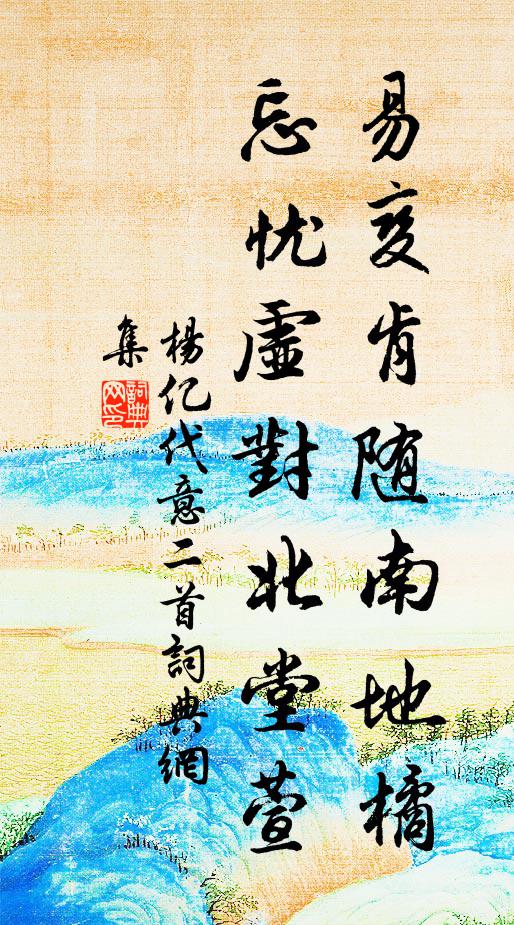 易变肯随南地橘
忘忧虚對北堂萱
楊亿代意二首詞典網
集
詞典网印